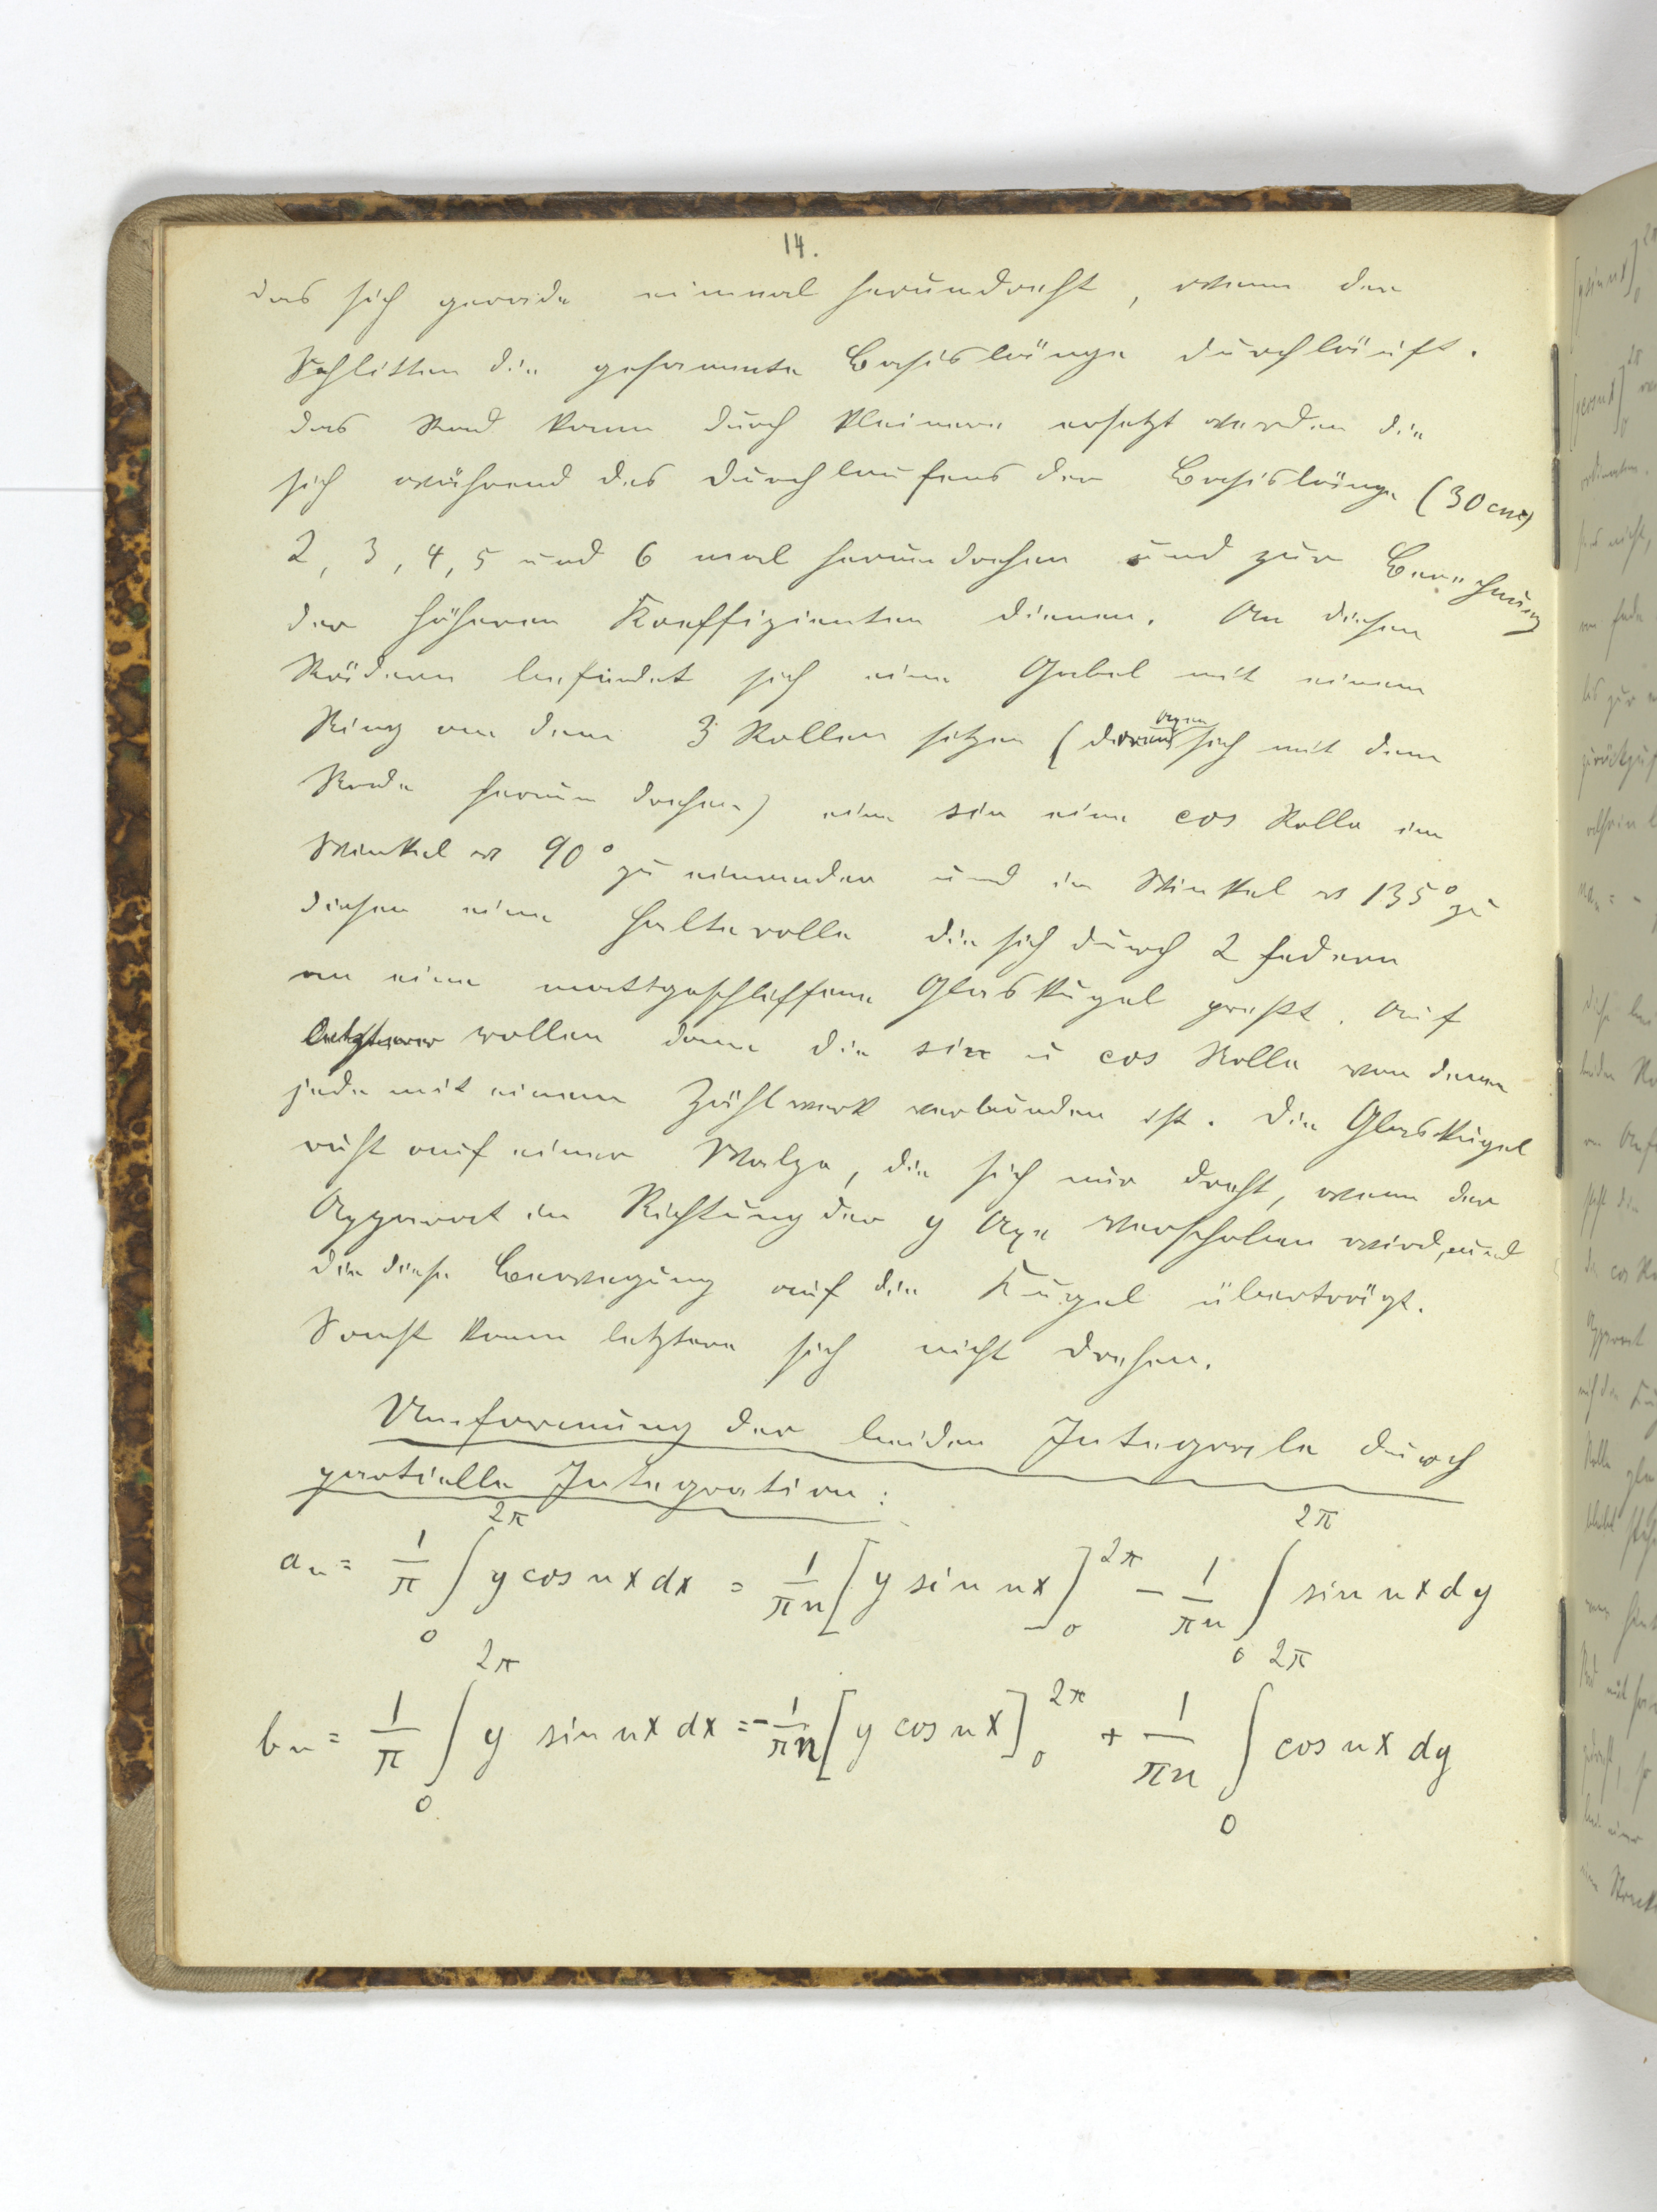 14.
das sich gerade einmal herumdreht, wenn der
Schlitten die gesammte Basislänge durchläuft.
Das Rad kann durch kleinere ersetzt werden die
sich während des Durchlaufens der Basislänge (30cm)
2, 3, 4, 5 und 6 mal herumdrehen und zur Berechnung
der höheren Koeffizienten dienen. An diesen
Rädern befindet sich eine Gabel mit einem
Ring an dem 3 Rollen sitzen (deren Axen sich mit dem
Rade herum drehen) eine sin eine cos Rolle im
Winkel v 90° zu einander und im Winkel v 135° zu
diesen eine Halterolle die sich durch 2 Federn
an eine mattgeschliffene Glaskugel presst. Auf
letzterer rollen dann die sin u cos Rolle von denen
jede mit einem Zählwerk verbunden ist. Die Glaskugel
ruht auf einer Walze, die sich nur dreht, wenn der
Apparat in Richtung der y Axe verschoben wird, und
die diese Bewegung auf die Kugel überträgt.
Sonst kann letztere sich nicht drehen.
Umformung der beiden Integrale durch
partielle Integration:
a_n = 1/π ∫_0^{2π} y cos nx dx = 1/πn [y sin nx]_0^{2π} − 1/πn ∫_0^{2π} sin nx dy
b_n = 1/π ∫_0^{2π} y sin nx dx = −1/πn [y cos nx]_0^{2π} + 1/πn ∫_0^{2π} cos nx dy